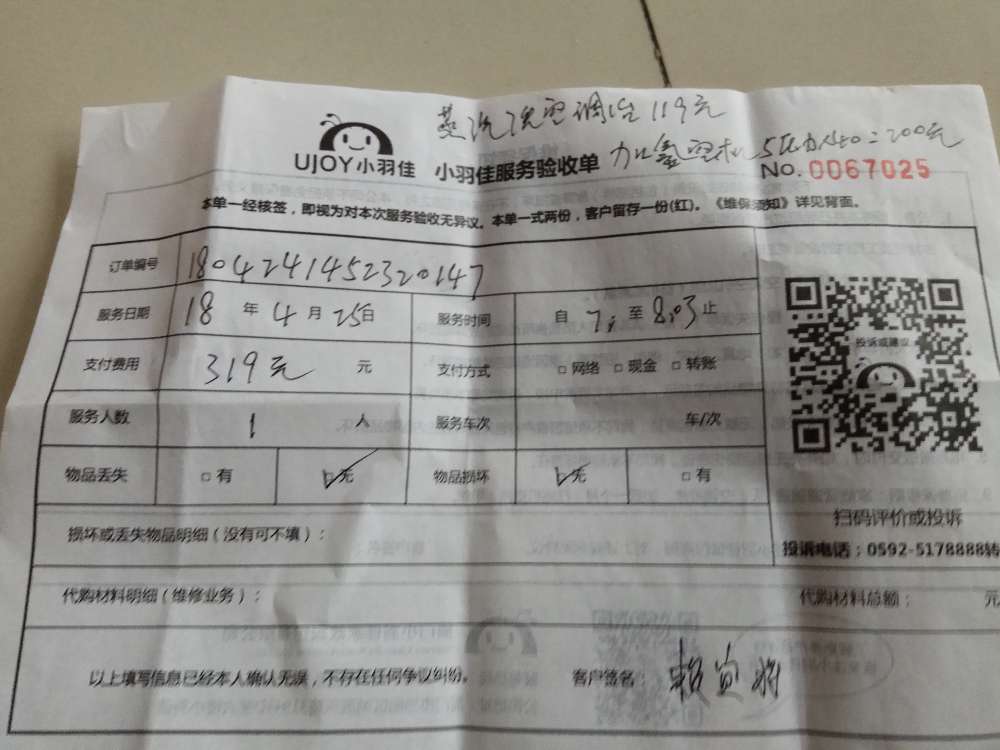 蒸汽洗空调159 119元
UJOY小羽佳 小羽佳服务验收单 加氟空机5压力×40=200元
No.0067025
本单一经核签，即视为对本次服务验收无异议。本单一式两份，客户留存一份(红)。《维保须知》详见背面。
订单编号 1804241452320147
服务日期 18 年 4 月 25 日 服务时间 自 7: 至 8:03 止
支付费用 319元 元 支付方式 □网络 □现金 □转账
投诉或建议
服务人数 1 人 服务车次 车/次
物品丢失 □有 □无 物品损坏 □无 □有
扫码评价或投诉
损坏或丢失物品明细（没有可不填）：
投诉电话：0592-5178888转
代购材料明细（维修业务）： 代购材料总额： 元
以上填写信息已经本人确认无误，不存在任何争议纠纷。 客户签名：